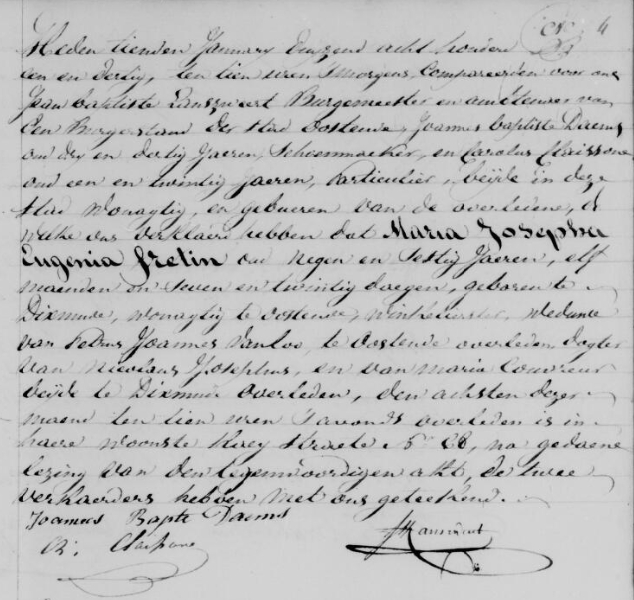 4
Heden tienden January duyzend acht hondert
een en dertig, ten tien uren smorgens, Compareerden voor ons
Jean baptiste Lanszweert Burgemeester en amtenaer van
den Burgerstand der stad oostende, Joannes baptiste Daems
oud dry en dertig Jaeren, Schoenmaeker, en Carolus
oud een en twintig Jaeren, particulier, beyde in deze
stad wonagtig, en gebueren van de overledene, de
welke ons verklaerd hebben dat Maria Josepha
Eugenia Fretin oud negen en sestig Jaeren, elf
maenden en seven en twintig daegen, geboren te
Dixmude, woonagtig te oostende, winkelierster, weduwe
van Petrus Joannes Vanloo, te oostende overleden, dogter
van Nicolaus Josephus, en van maria Couvreur
beyde te Dixmude overleden, den achsten dezer
maend ten tien uren s'avonds overleden is in
haere woonste Kaey straete N° 28, na gedaene
lezing van den tegenwoordigen akt, de twee
verklaerders hebben met ons geteekend.
Joannes Bapte Daems